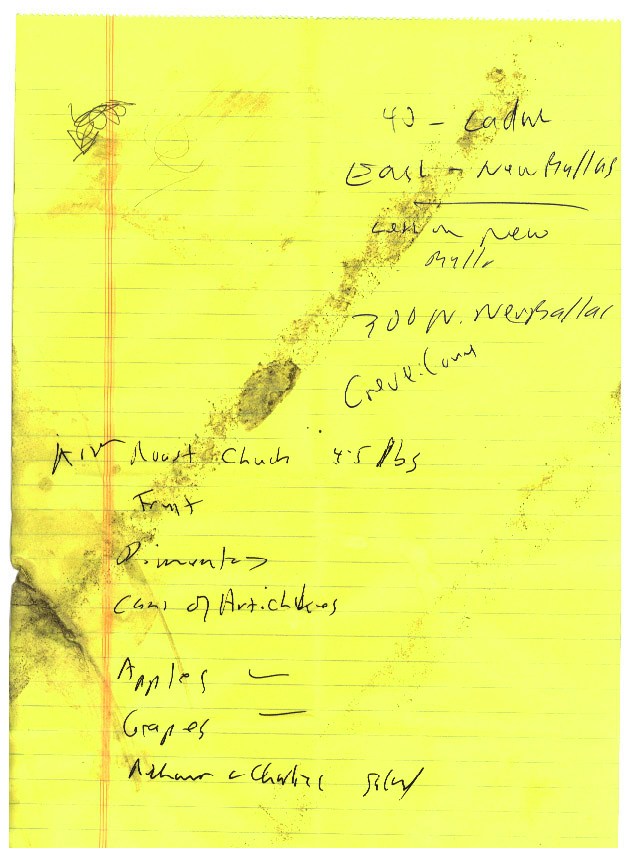 40 - Ladue
East - New Ballas
Left on New
Ballas
300 N. New Ballas
Creve Coeur
Roast Chuck 4.5 lbs
Fruit
Pimentos
Cans of Artichokes
Apples —
Grapes —